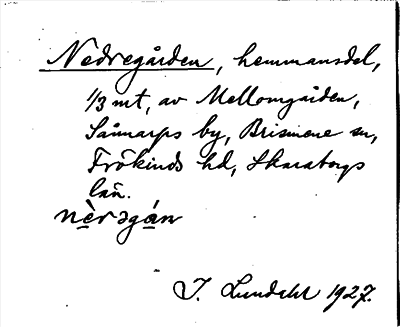 Nedregården, hemmansdel,
1/3 mt, av Mellomgården,
Sännarps by, Brismene sn,
Frökinds hd, Skaraborgs
län.
nèrəgán
I. Lundahl 1927.